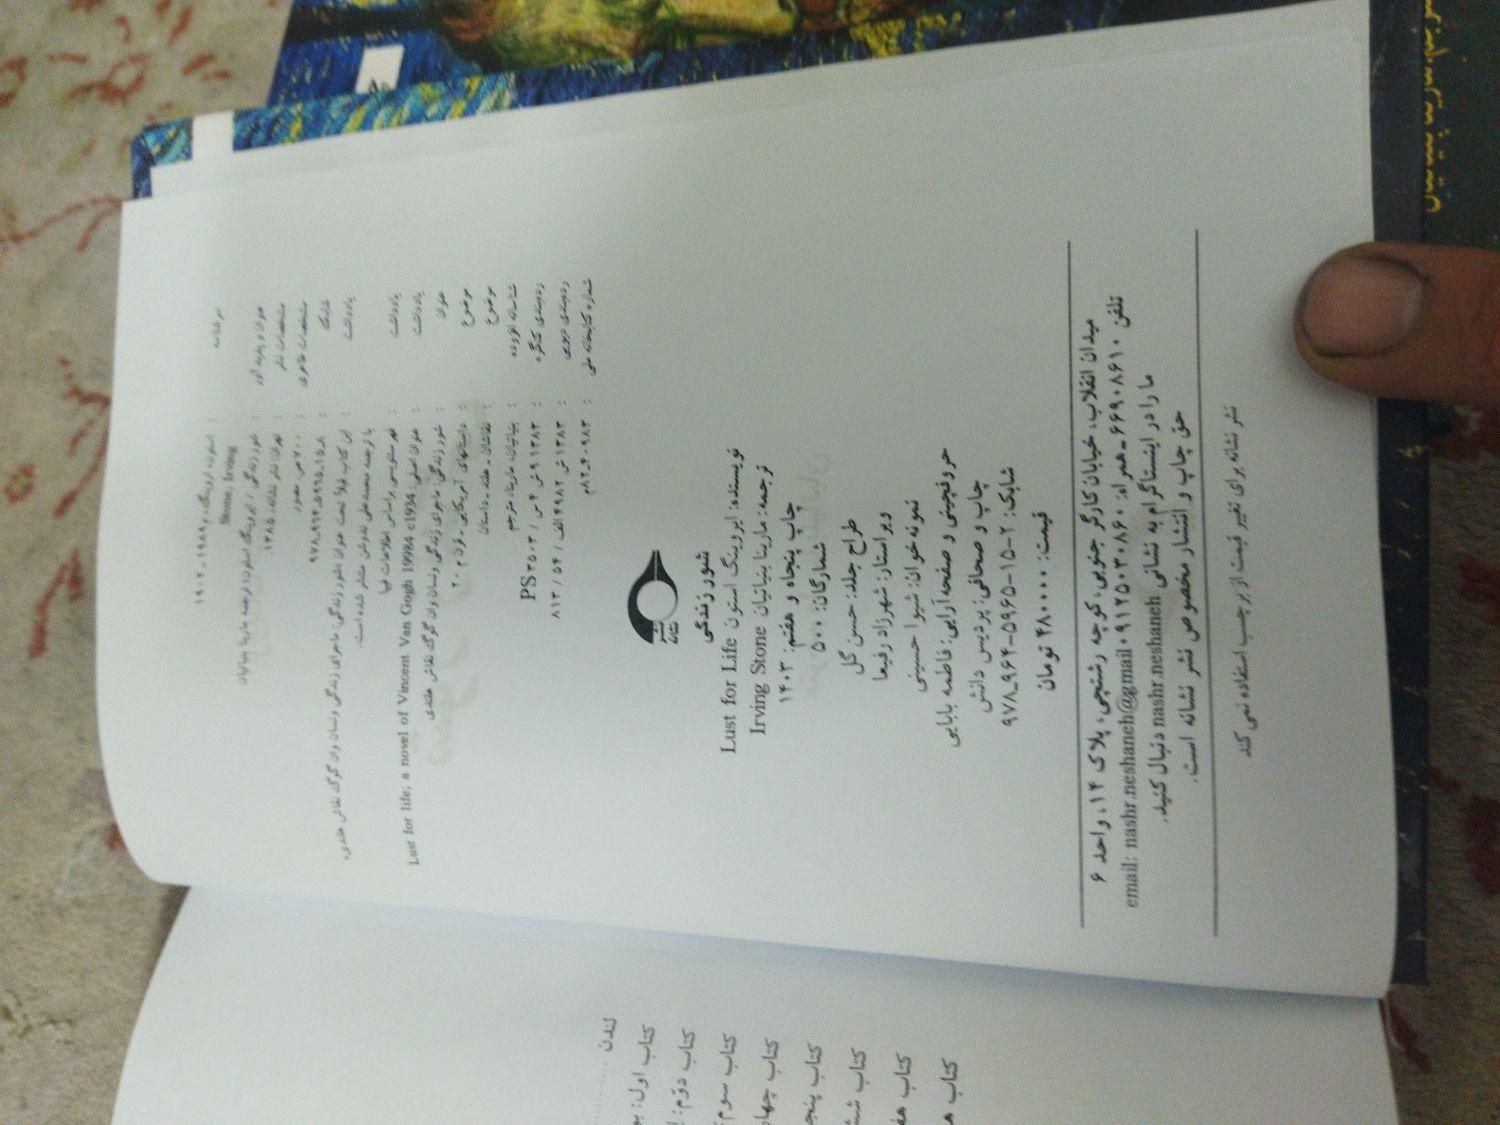 سرشناسه : استون، ایروینگ، ۱۹۰۳ ـ ۱۹۸۹ م.
Stone, Irving
عنوان و پدیدآور : شور زندگی / ایروینگ استون؛ ترجمه مارینا بنیاتیان
مشخصات نشر : تهران: نشر نشانه، ۱۳۸۵.
مشخصات ظاهری : ۷۰۰ ص. مصور
شابک : ۹۷۸ـ۹۶۴ـ۵۹۶۵ـ۱۵ـ۸
یادداشت : این کتاب قبلاً تحت عنوان «شور زندگی: ماجرای زندگی ونسان وان گوگ نقاش هلندی»
با ترجمه محمدعلی اسلامی ندوشن منتشر شده است.
یادداشت : فهرستنویسی براساس اطلاعات فیپا
یادداشت : عنوان اصلی: Lust for life; a novel of Vincent Van Gogh 19984 c1934
عنوان : شور زندگی: ماجرای زندگی ونسان وان گوگ نقاش هلندی
موضوع : داستانهای آمریکایی ـ قرن ۲۰
موضوع : نقاشان ـ هلند ـ داستان
شناسه افزوده : بنیاتیان، مارینا، مترجم
رده‌بندی کنگره : PS۳۵۰۳ / س ۴ ش ۹ ۱۳۸۳
رده‌بندی دیویی : ۸۱۳ / ۵۴
شماره کتابخانه ملی : ۸۲ـ۴۰۹۸۳م
نشر نشانه
شور زندگی
نویسنده: ایروینگ استون Lust for Life
ترجمه: مارینا بنیاتیان Irving Stone
چاپ پنجاه و هفتم: ۱۴۰۳
شمارگان: ۵۰۰
طراح جلد: حسن گل
ویراستار: شهرزاد رفیعا
نمونه‌خوان: شیوا حسینی
حروفچینی و صفحه‌آرایی: فاطمه بابایی
چاپ و صحافی: پردیس دانش
شابک: ۲-۱۵-۵۹۶۵-۹۶۴-۹۷۸
قیمت: ۴۸۰۰۰۰ تومان
میدان انقلاب، خیابان کارگر جنوبی، کوچه رشتچی، پلاک ۱۴، واحد ۶
تلفن ۶۶۹۰۸۶۱۰ ـ همراه: ۰۹۱۲۵۰۳۰۸۶۰ email: nashr.neshaneh@gmail
ما را در اینستاگرام به نشانی nashr.neshaneh دنبال کنید.
حق چاپ و انتشار مخصوص نشر نشانه است.
نشر نشانه برای تغییر قیمت از برچسب استفاده نمی‌کند
لندن
کتاب اول:
کتاب دوّم:
کتاب سوم:
کتاب
کتاب
کتاب
کتاب
کتاب